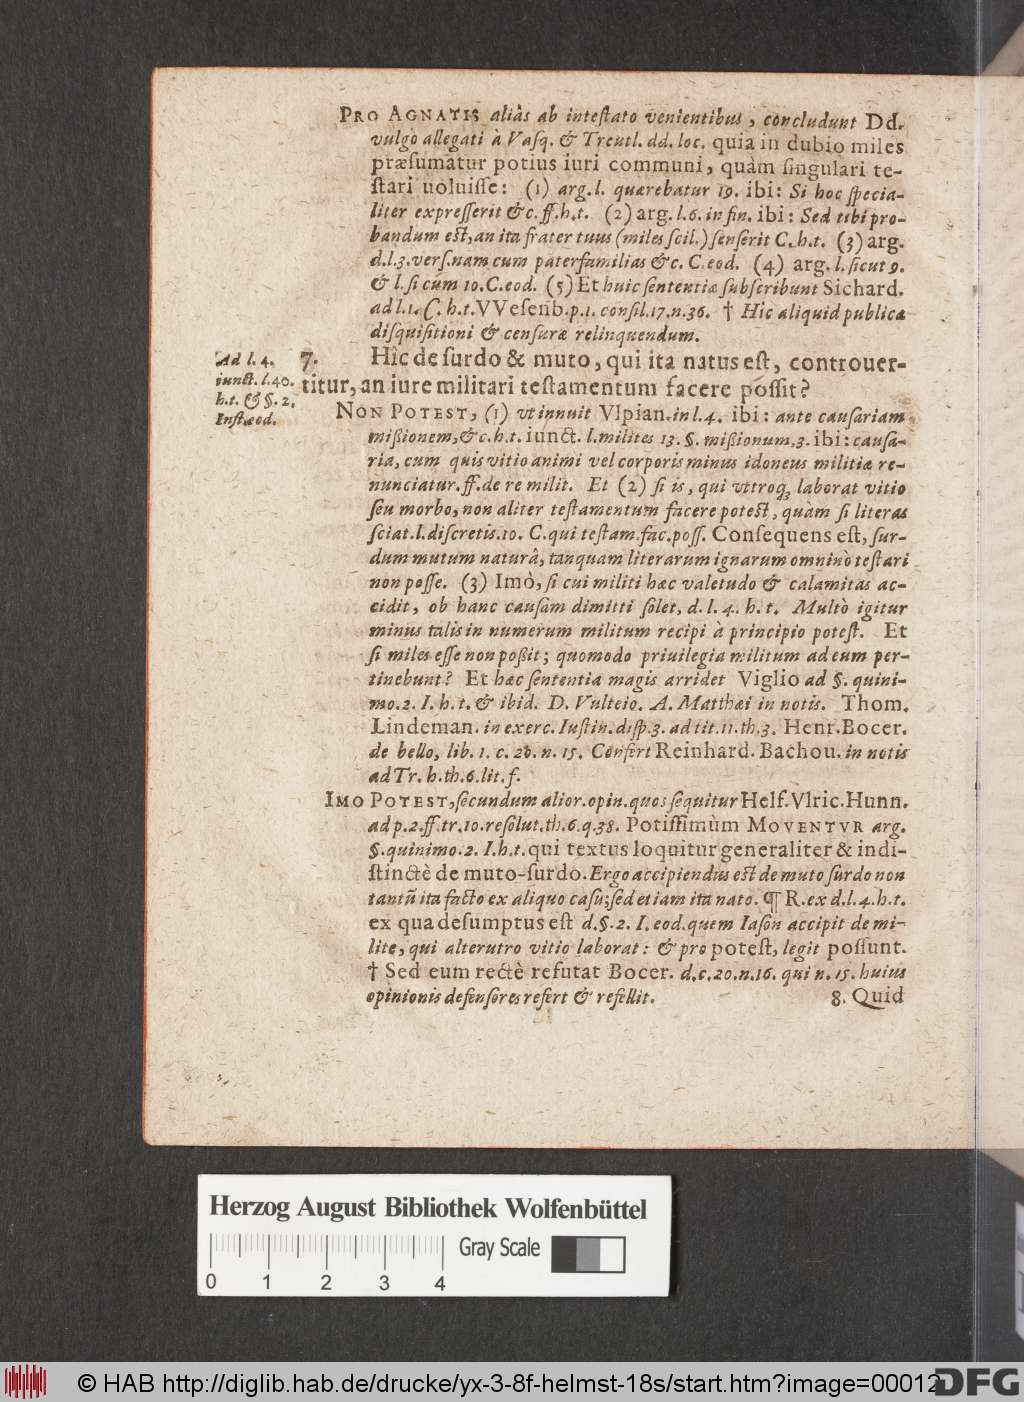 PRO AGNATIS aliàs ab inteſtato venientibus, concludunt Dd.
vulgò allegati à Vaſq. & Treutl. dd. loc. quia in dubio miles
præſumatur potius iuri communi, quàm ſingulari te-
ſtari uoluiſſe: (1) arg. l. quærebatur 19. ibi: Si hoc ſpecia-
liter expreſſerit &c. ff. h. t. (2) arg. l. 6. in fin. ibi: Sed tibi pro-
bandum est, an ita frater tuus (miles ſcil.) ſenſerit C. h. t. (3) arg.
d. l. 3. verſ. nam cum paterfamilias &c. C. eod. (4) arg. l. ſicut 9.
& l. ſi cùm 10. C. eod. (5) Et huic ſententiæ ſubſcribunt Sichard.
ad l. 1. C. h. t. VVeſenb. p. 1. conſil. 17. n. 36. † Hic aliquid publicæ
diſquiſitioni & cenſuræ relinquendum.
Ad l. 4.
iunct. l. 40.
h. t. & §. 2.
Inſt. eod.
7. Hîc de ſurdo & muto, qui ita natus eſt, controuer-
titur, an iure militari teſtamentum facere poſſit?
NON POTEST, (1) vt innuit Vlpian. in l. 4. ibi: ante cauſariam
mißionem, &c. h. t. iunct. l. milites 13. §. mißionum, 3. ibi: cauſa-
ria, cum quis vitio animi vel corporis minus idoneus militiæ re-
nunciatur. ff. de re milit. Et (2) ſi is, qui vtroq; laborat vitio
ſeu morbo, non aliter teſtamentum facere potest, quàm ſi literas
ſciat. l. diſcretis. 10. C. qui teſtam. fac. poſſ. Conſequens eſt, ſur-
dum mutum naturâ, tanquam literarum ignarum omninò teſtari
non poſſe. (3) Imò, ſi cui militi hæc valetudo & calamitas ac-
cidit, ob hanc cauſam dimitti ſolet, d. l. 4. h. t. Multò igitur
minus talis in numerum militum recipi à principio poteſt. Et
ſi miles eſſe non poßit; quomodo priuilegia militum ad eum per-
tinebunt? Et hæc ſententia magis arridet Viglio ad §. quini-
mo. 2. I. h. t. & ibid. D. Vulteio. A. Matthæi in notis. Thom.
Lindeman. in exerc. Iuſtin. diſp. 3. ad tit. 11. th. 3. Henr. Bocer.
de bello, lib. 1. c. 20. n. 15. Confert Reinhard. Bachou. in notis
ad Tr. h. th. 6. lit. f.
IMO POTEST, ſecundum alior. opin. quos ſequitur Helf. Vlric. Hunn.
ad p. 2. ff. tr. 10. reſolut. th. 6. q. 38. Potiſſimùm MOVENTVR arg.
§. quinimo. 2. I. h. t. qui textus loquitur generaliter & indi-
ſtinctè de muto-ſurdo. Ergo accipiendus est de muto ſurdo non
tantū ita facto ex aliquo caſu; ſed etiam ita nato. ¶ R. ex d. l. 4. h. t.
ex qua deſumptus eſt d. §. 2. I. eod. quem Iaſon accipit de mi-
lite, qui alterutro vitio laborat: & pro poteſt, legit poſſunt.
† Sed eum rectè refutat Bocer. d. c. 20. n. 16. qui n. 15. huius
opinionis defenſores refert & refellit.
8. Quid
Herzog August Bibliothek Wolfenbüttel
Gray Scale
0 1 2 3 4
© HAB http://diglib.hab.de/drucke/yx-3-8f-helmst-18s/start.htm?image=00012
DFG